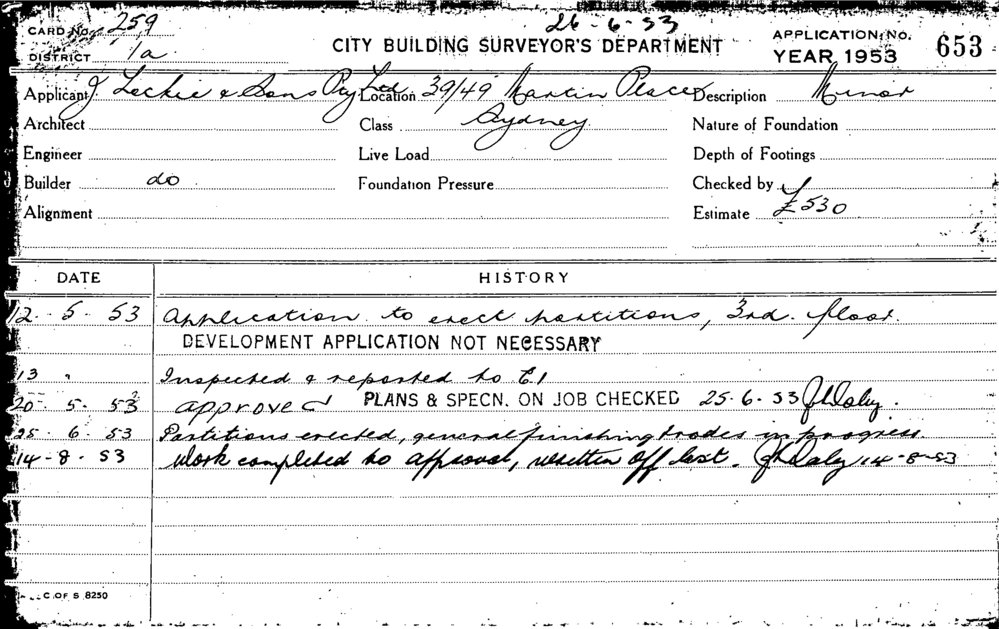 CARD No. 259
26-6-53
CITY BUILDING SURVEYOR'S DEPARTMENT
APPLICATION No. 653
YEAR 1953
DISTRICT 1a
Applicant J Leckie & Sons Pty Ltd Location 39/49 Martin Place Description Minor
Architect Class Sydney Nature of Foundation
Engineer Live Load Depth of Footings
Builder do Foundation Pressure Checked by
Alignment Estimate £530
DATE HISTORY
12. 5. 53 Application to erect partitions, 3rd. floor.
DEVELOPMENT APPLICATION NOT NECESSARY
13 " Inspected & reported to C1
20. 5. 53 approved PLANS & SPECN. ON JOB CHECKED 25-6-53 Daly.
25. 6. 53 Partitions erected, general finishing trades in progress
14-8-53 Work completed to approval, written off list. Daly 14-8-53
C. OF S 8250